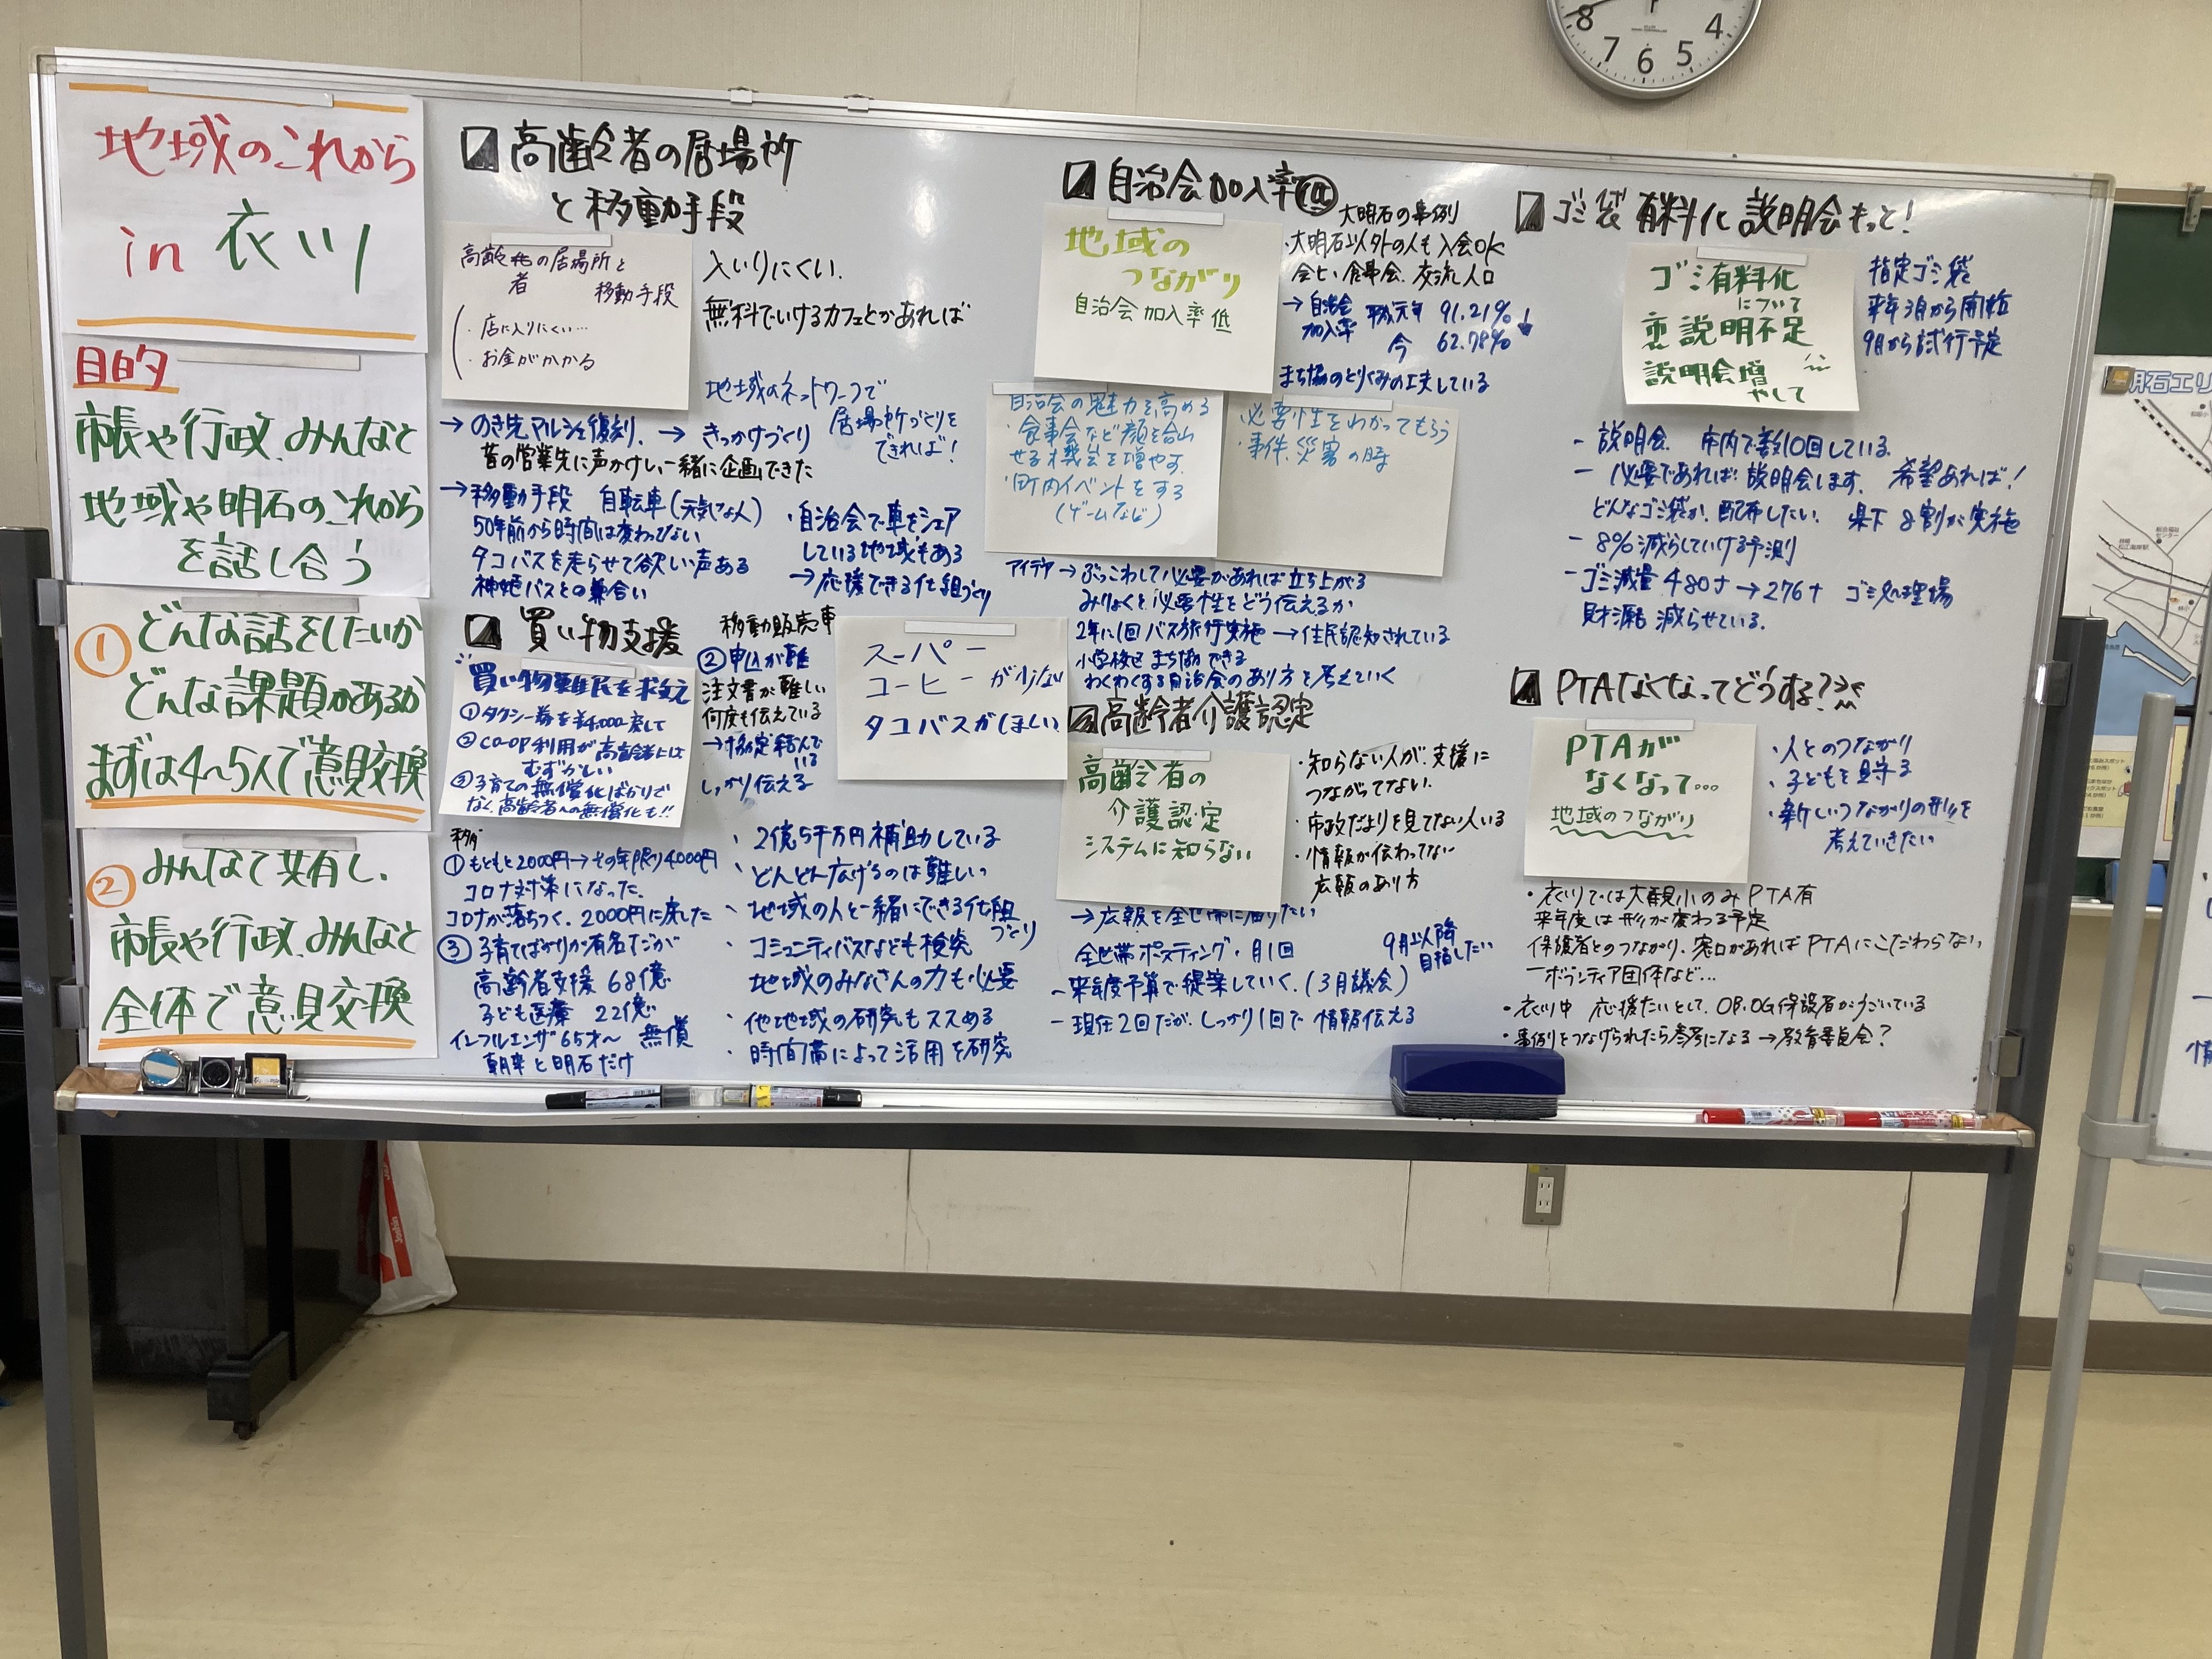 地域のこれから
in 衣川
目的
市長や行政、みんなと
地域や明石のこれから
を話し合う
① どんな話をしたいか
どんな課題があるか
まずは4~5人で意見交換
② みんなで共有し、
市長や行政、みんなと
全体で意見交換
高齢者の居場所
と移動手段
高齢者の居場所と
移動手段
・店に入りにくい…
・お金がかかる
入いりにくい.
無料でいけるカフェとかあれば
地域のネットワークで
居場所づくりを
できれば!
→のき先マルシェ復刻. → きっかけづくり
昔の営業先に声かけし、一緒に企画できた
→移動手段 自転車(元気な人)
50年前から時間は変わってない
タコバスを走らせて欲しい声ある
神姫バスとの兼合い
・自治会で車をシェア
している地域もある
→応援できる仕組づくり
買い物支援
買い物難民を救え
①タクシー券を¥4000に戻して
②CO-OP利用が高齢者には
むずかしい
③子育ての無償化ばかりで
なく高齢者への無償化も!!
移動販売車
②申込が難
注文書が難しい
何度も伝えている
→協定結んで
いる
しっかり伝える
スーパー
コーヒー が少ない
タコバスがほしい
①もともと2000円→その年限り4000円
コロナ対策になった.
コロナが落ちつく. 2000円に戻した
③子育てばかりが有名だが
高齢者支援 68億
子ども医療 22億
インフルエンザ65才~ 無償
朝来と明石だけ
・2億5千万円補助している
・どんどん広げるのは難しい
・地域の人と一緒にできる仕組
づくり
・コミュニティバスなども検究
地域のみなさんの力も必要
・他地域の研究もススめる
・時間帯によって活用を研究
自治会加入率(低)
地域の
つながり
自治会加入率低
大明石の事例
・大明石以外の人も入会OK
会ヒ、食事会、交流人口
→自治会
加入率 平成元年 91.21%
今 62.78%↓
まち協のとりくみの工夫している
自治会の魅力を高める
・食事会など顔を合わ
せる機会を増やす.
・町内イベントをする
(ゲームなど)
必要性をわかってもらう
・事件、災害の時
アイデア→ぶっこわして必要があれば立ち上がる
みりょくと必要性をどう伝えるか
2年に1回バス旅行実施→住民認知されている
小学校区 まち協できる
わくわくする自治会のあり方を考えていく
高齢者介護認定
高齢者の
介護認定
システムに知らない
・知らない人が、支援に
つながってない.
・市政だよりを見てない人いる
・情報が伝わってない
広報のあり方
→広報を全世帯に届けたい
全世帯ポスティング・月1回
9月以降
目指したい
-来年度予算で提案していく.(3月議会)
-現在2回だが、しっかり1回で情報伝える
ゴミ袋有料化説明会もっと!
ゴミ有料化
について
説明不足
説明会増
やして
指定ゴミ袋
来年3月から開始
9月から試行予定
- 説明会. 市内で数10回している.
- 必要であれば説明会します. 希望あれば!
どんなゴミ袋か、配布したい. 県下8割が実施
- 8%減らしていける予測
-ゴミ減量 480t→276t ゴミ処理場
財源も減らせている.
PTAなくなってどうする?
PTAが
なくなって…
地域のつながり
・人とのつながり
・子どもを見守る
・新しいつながりの形を
考えていきたい
・衣川では大観小のみPTA有
来年度は形が変わる予定
保護者とのつながり、窓口があればPTAにこだわらない
ーボランティア団体など…
・衣川中 応援たいとして、OB.OG保護者がうごいている
・事例をつなげられたら参考になる→教育委員会?
8 7 6 5 4
明石エリ